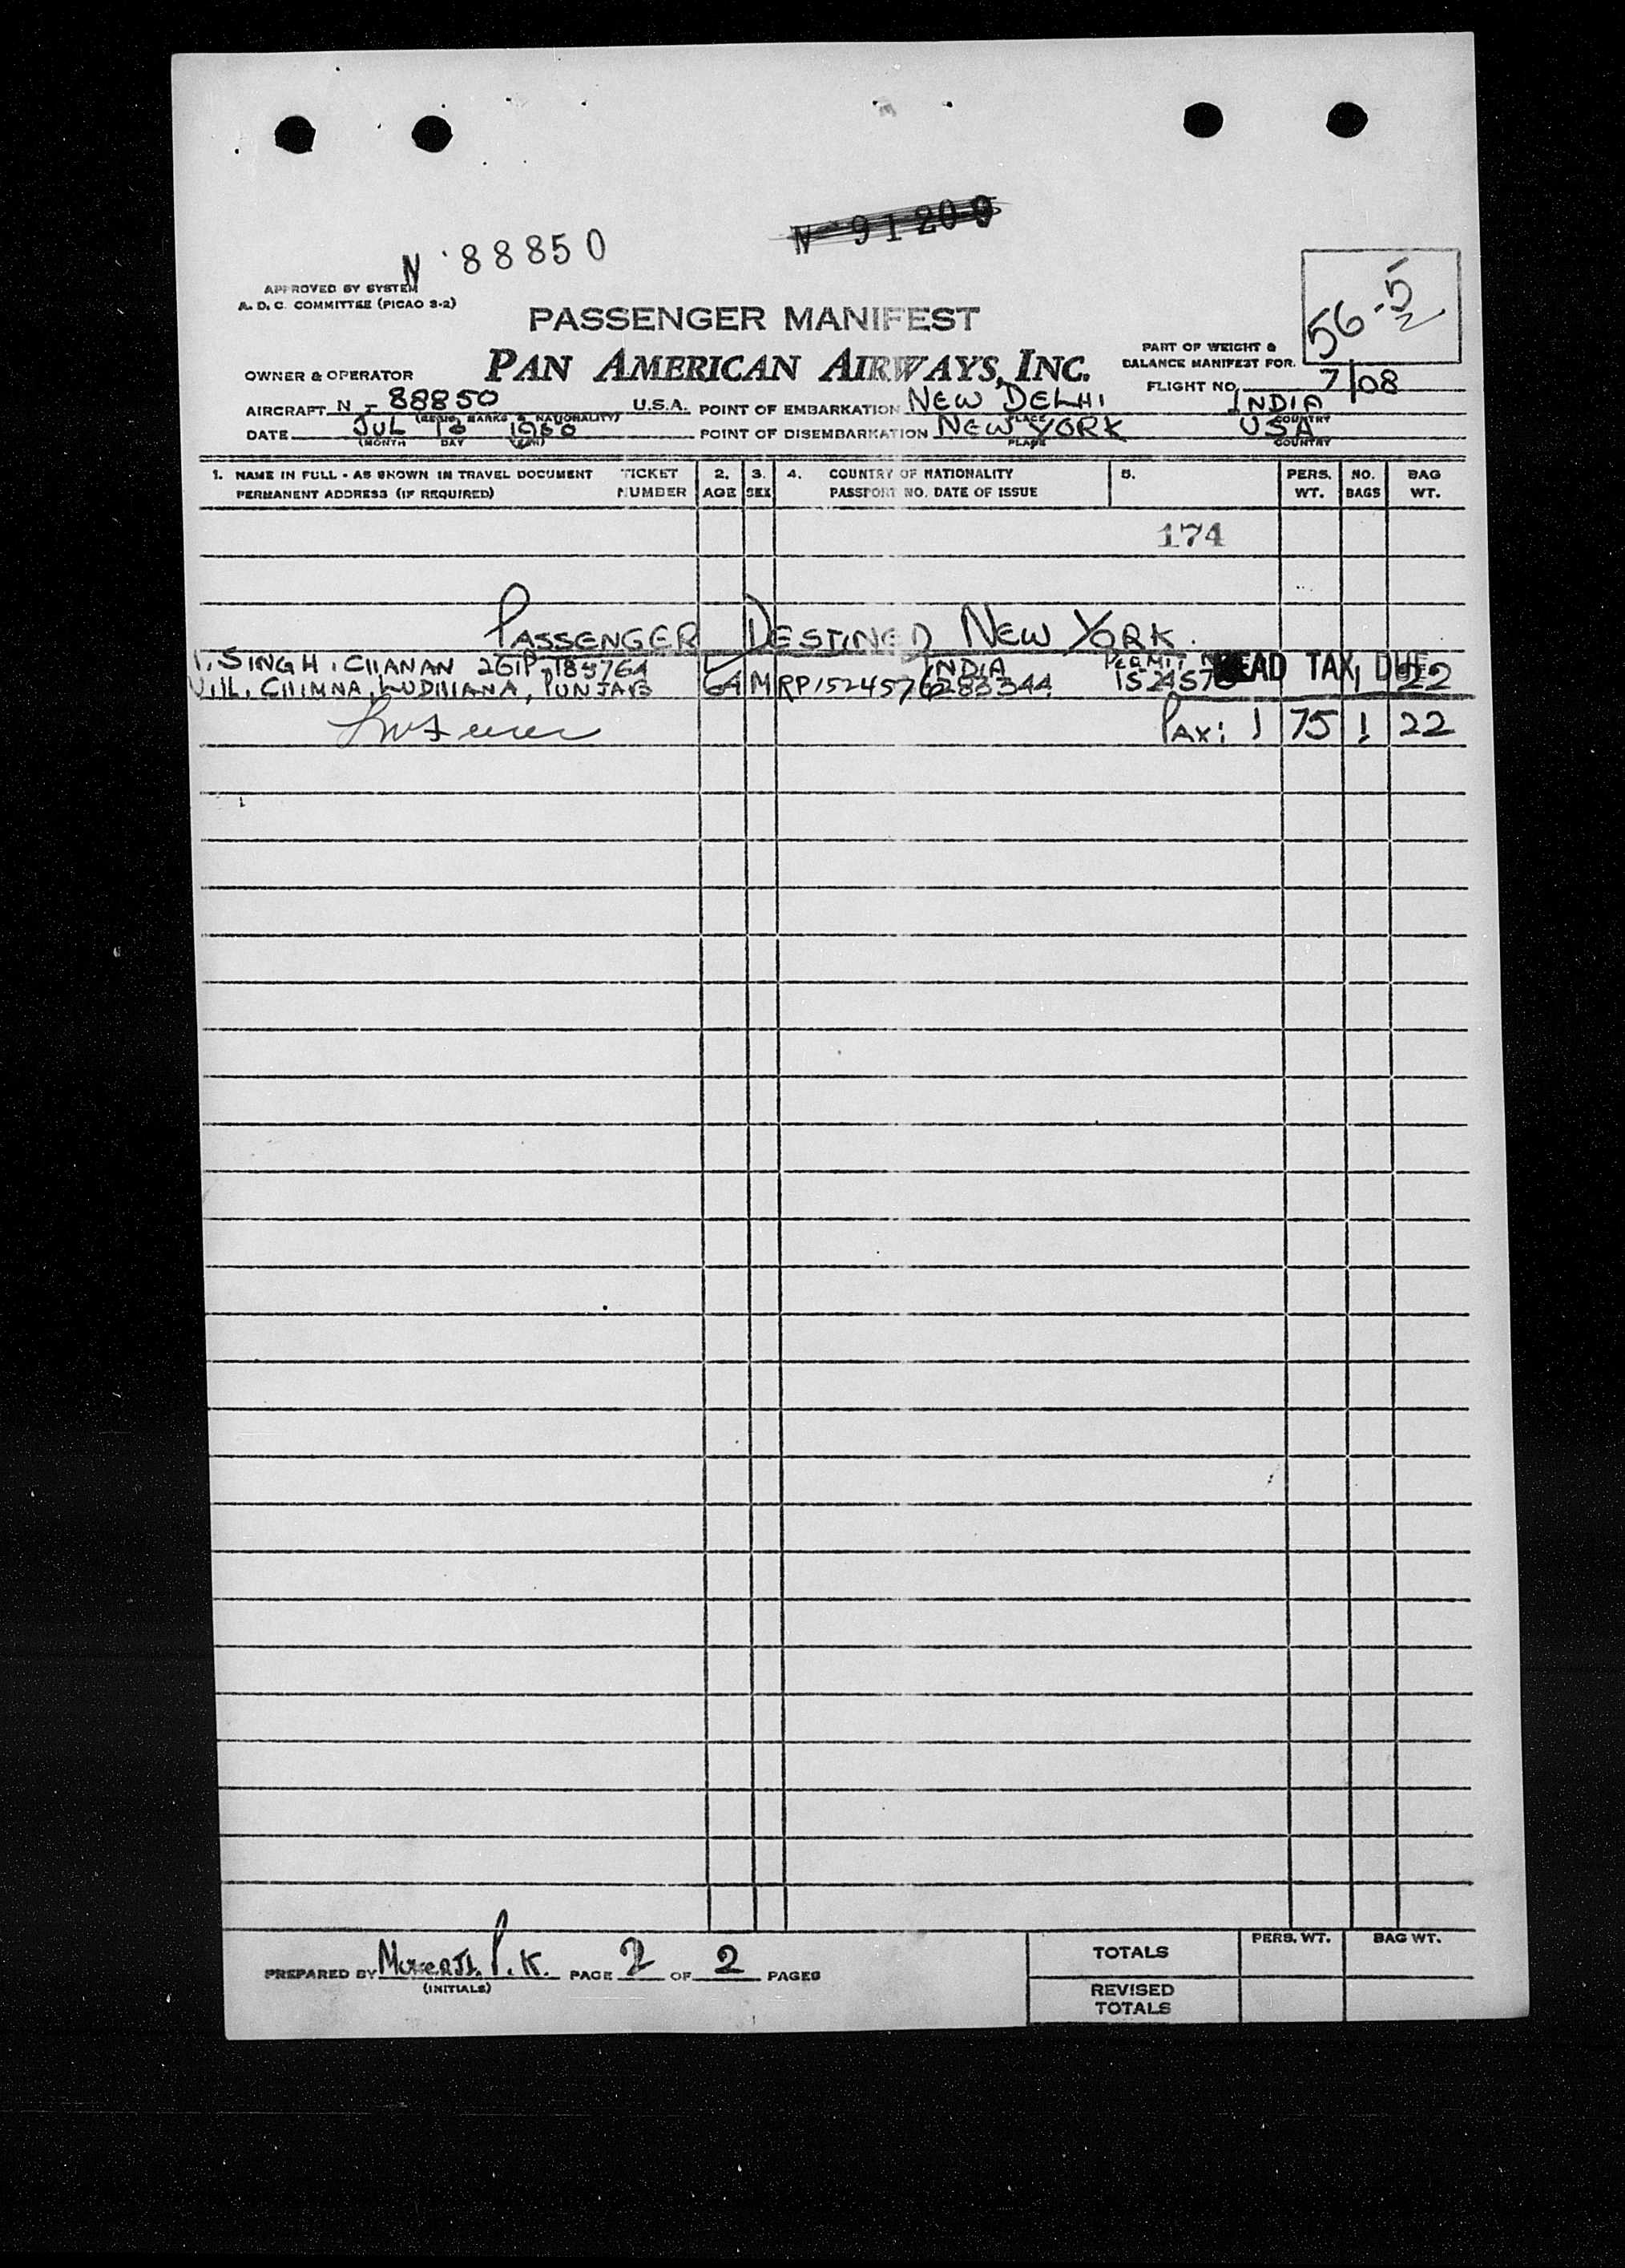 N 91209
N 88850
56-5
APPROVED BY SYSTEM
A. D. C. COMMITTEE (PICAO S-2)
PASSENGER MANIFEST
PART OF WEIGHT &
BALANCE MANIFEST FOR
OWNER & OPERATOR PAN AMERICAN AIRWAYS, INC.
FLIGHT NO. 7/08
AIRCRAFT N-88850 U.S.A. POINT OF EMBARKATION NEW DELHI INDIA
MARKS & NATIONALITY) PLACE COUNTRY
DATE JUL 13 1950 POINT OF DISEMBARKATION NEW YORK USA
(MONTH DAY PLACE COUNTRY
1. NAME IN FULL - AS SHOWN IN TRAVEL DOCUMENT TICKET 2. 3. 4. COUNTRY OF NATIONALITY 5. PERS. NO. BAG
PERMANENT ADDRESS (IF REQUIRED) NUMBER AGE SEX PASSPORT NO. DATE OF ISSUE WT. BAGS WT.
174
PASSENGER DESTINED NEW YORK.
1. SINGH, CHANAN 261P-185764 INDIA PERMIT HEAD TAX DUE
VILL. CHIMNA, LUDHIANA, PUNJAB 64 M RP1524576 1 22
PAX: 1 75 1 22
PREPARED BY MUKERJI. P. K. PAGE 2 OF 2 PAGES
(INITIALS)
TOTALS PERS. WT. BAG WT.
REVISED
TOTALS